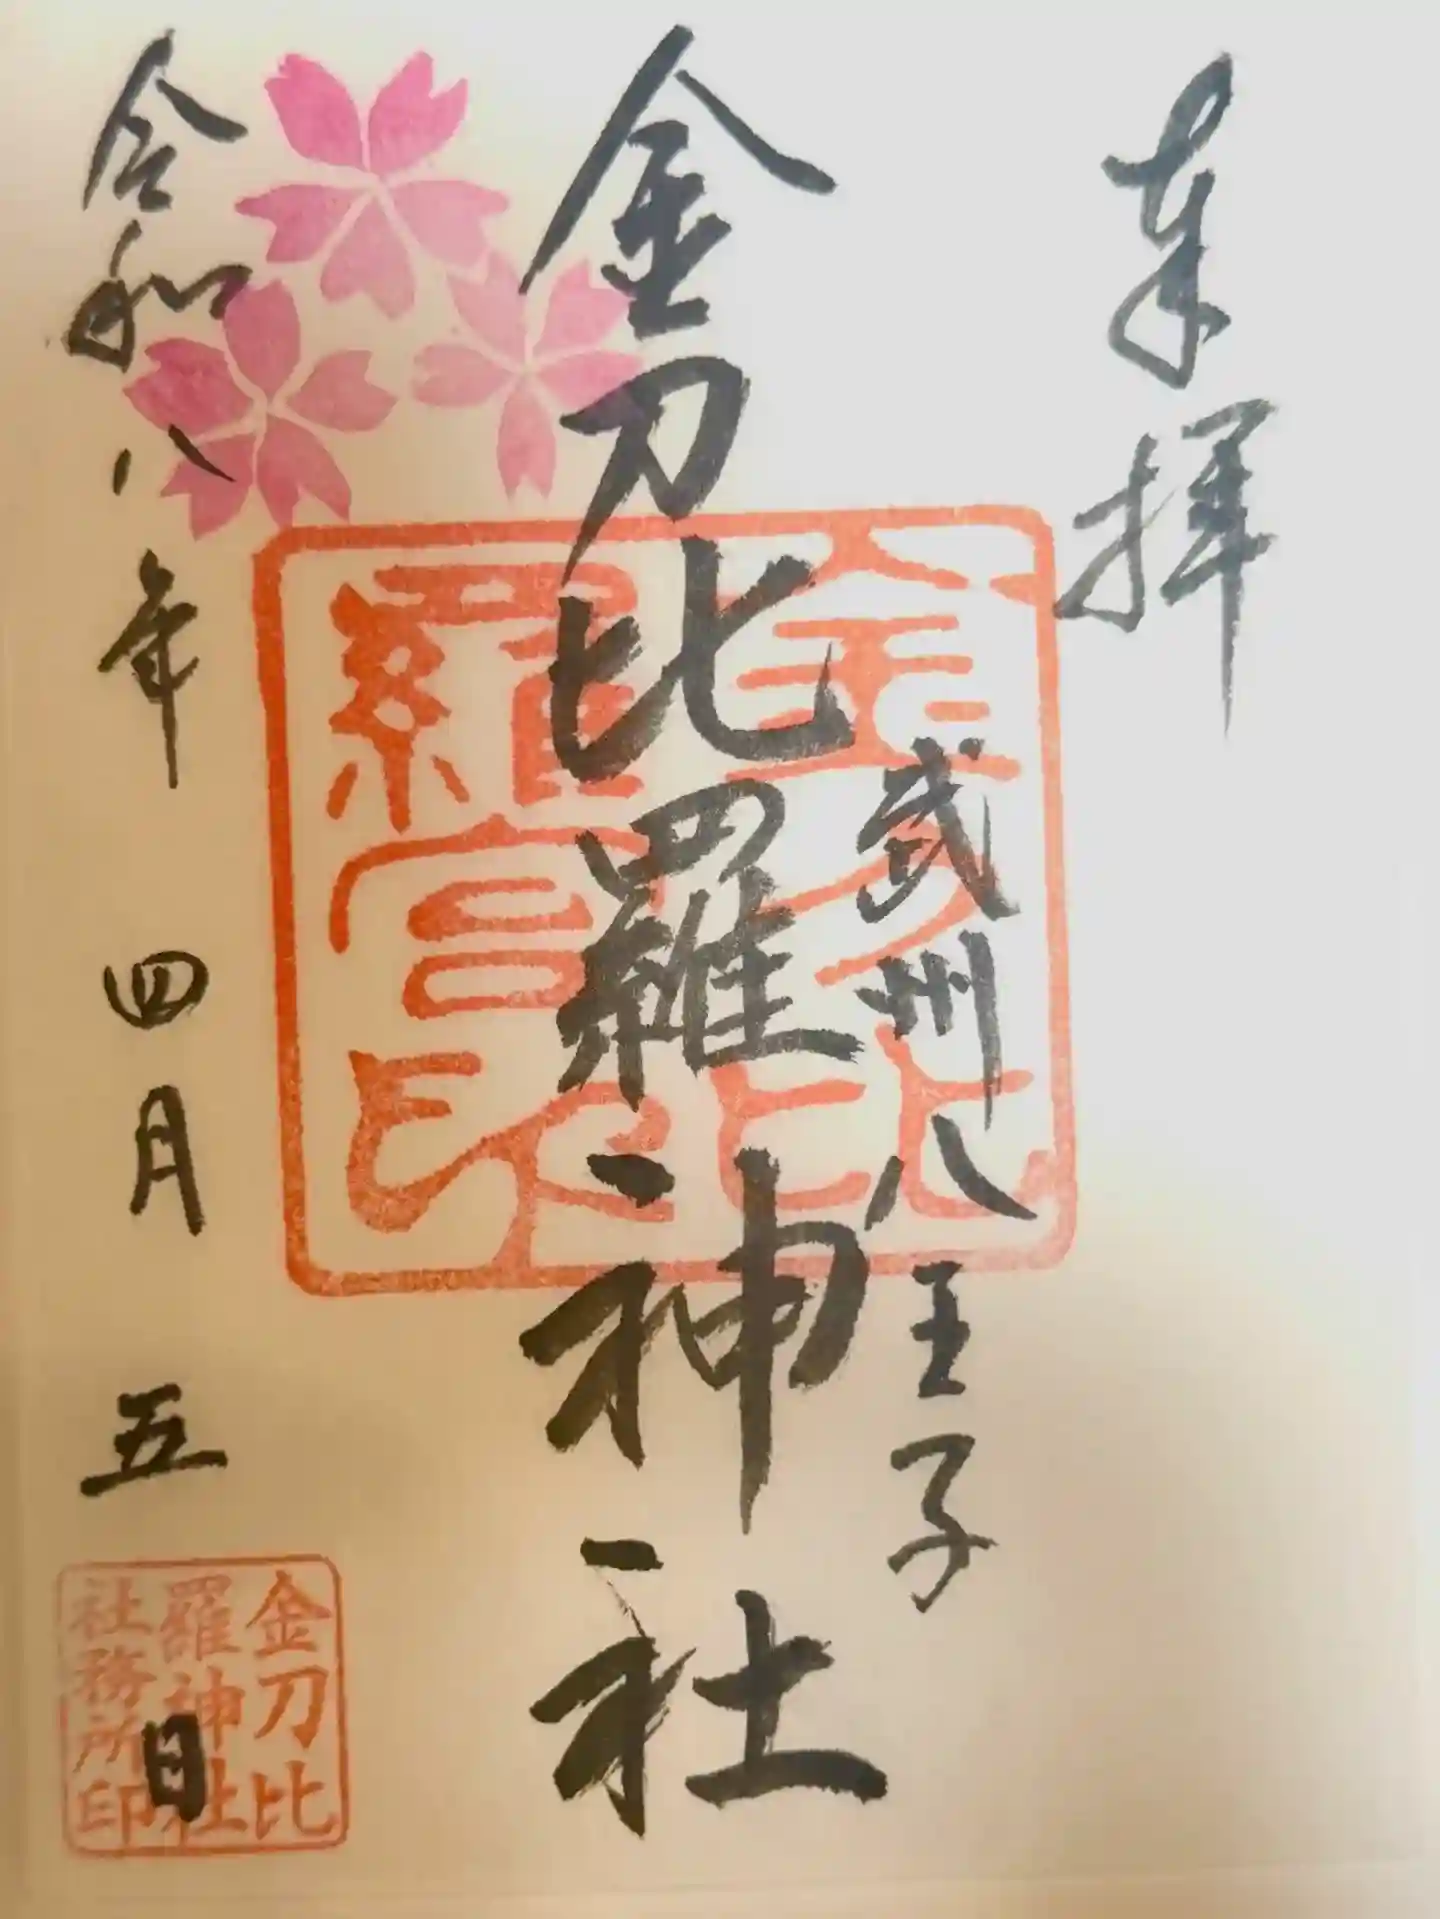 奉拝
武州八王子
金刀比羅神社
令和八年 四月 五日
金刀比
羅宮印
金刀比
羅神社
社務所印